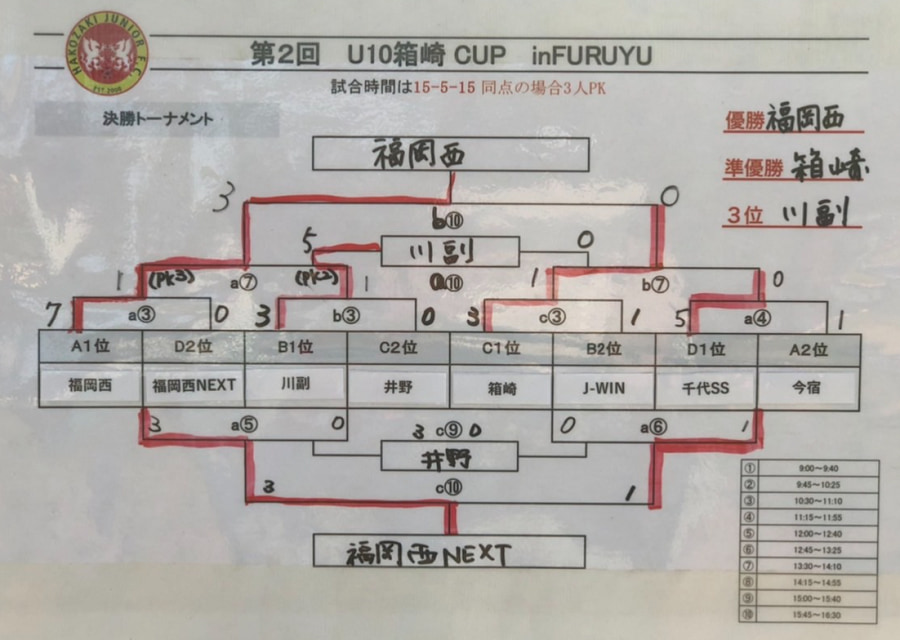 HAKOZAKI JUNIOR F.C.
第2回 U10箱崎 CUP inFURUYU
試合時間は15-5-15 同点の場合3人PK
決勝トーナメント
優勝 福岡西
準優勝 箱崎
3位 川副
福岡西
3 0
b⑩
5 川副 0
1 (PK3) a⑦ (PK2) 1 a⑩ 1 b⑦ 0
7 a③ 0 3 b③ 0 3 c③ 1 5 a④ 1
A1位 D2位 B1位 C2位 C1位 B2位 D1位 A2位
福岡西 福岡西NEXT 川副 井野 箱崎 J-WIN 千代SS 今宿
3 a⑤ 0 3 c⑨ 0 0 a⑥ 1
井野
3 c⑩ 1
福岡西NEXT
① 9:00～9:40
② 9:45～10:25
③ 10:30～11:10
④ 11:15～11:55
⑤ 12:00～12:40
⑥ 12:45～13:25
⑦ 13:30～14:10
⑧ 14:15～14:55
⑨ 15:00～15:40
⑩ 15:45～16:30